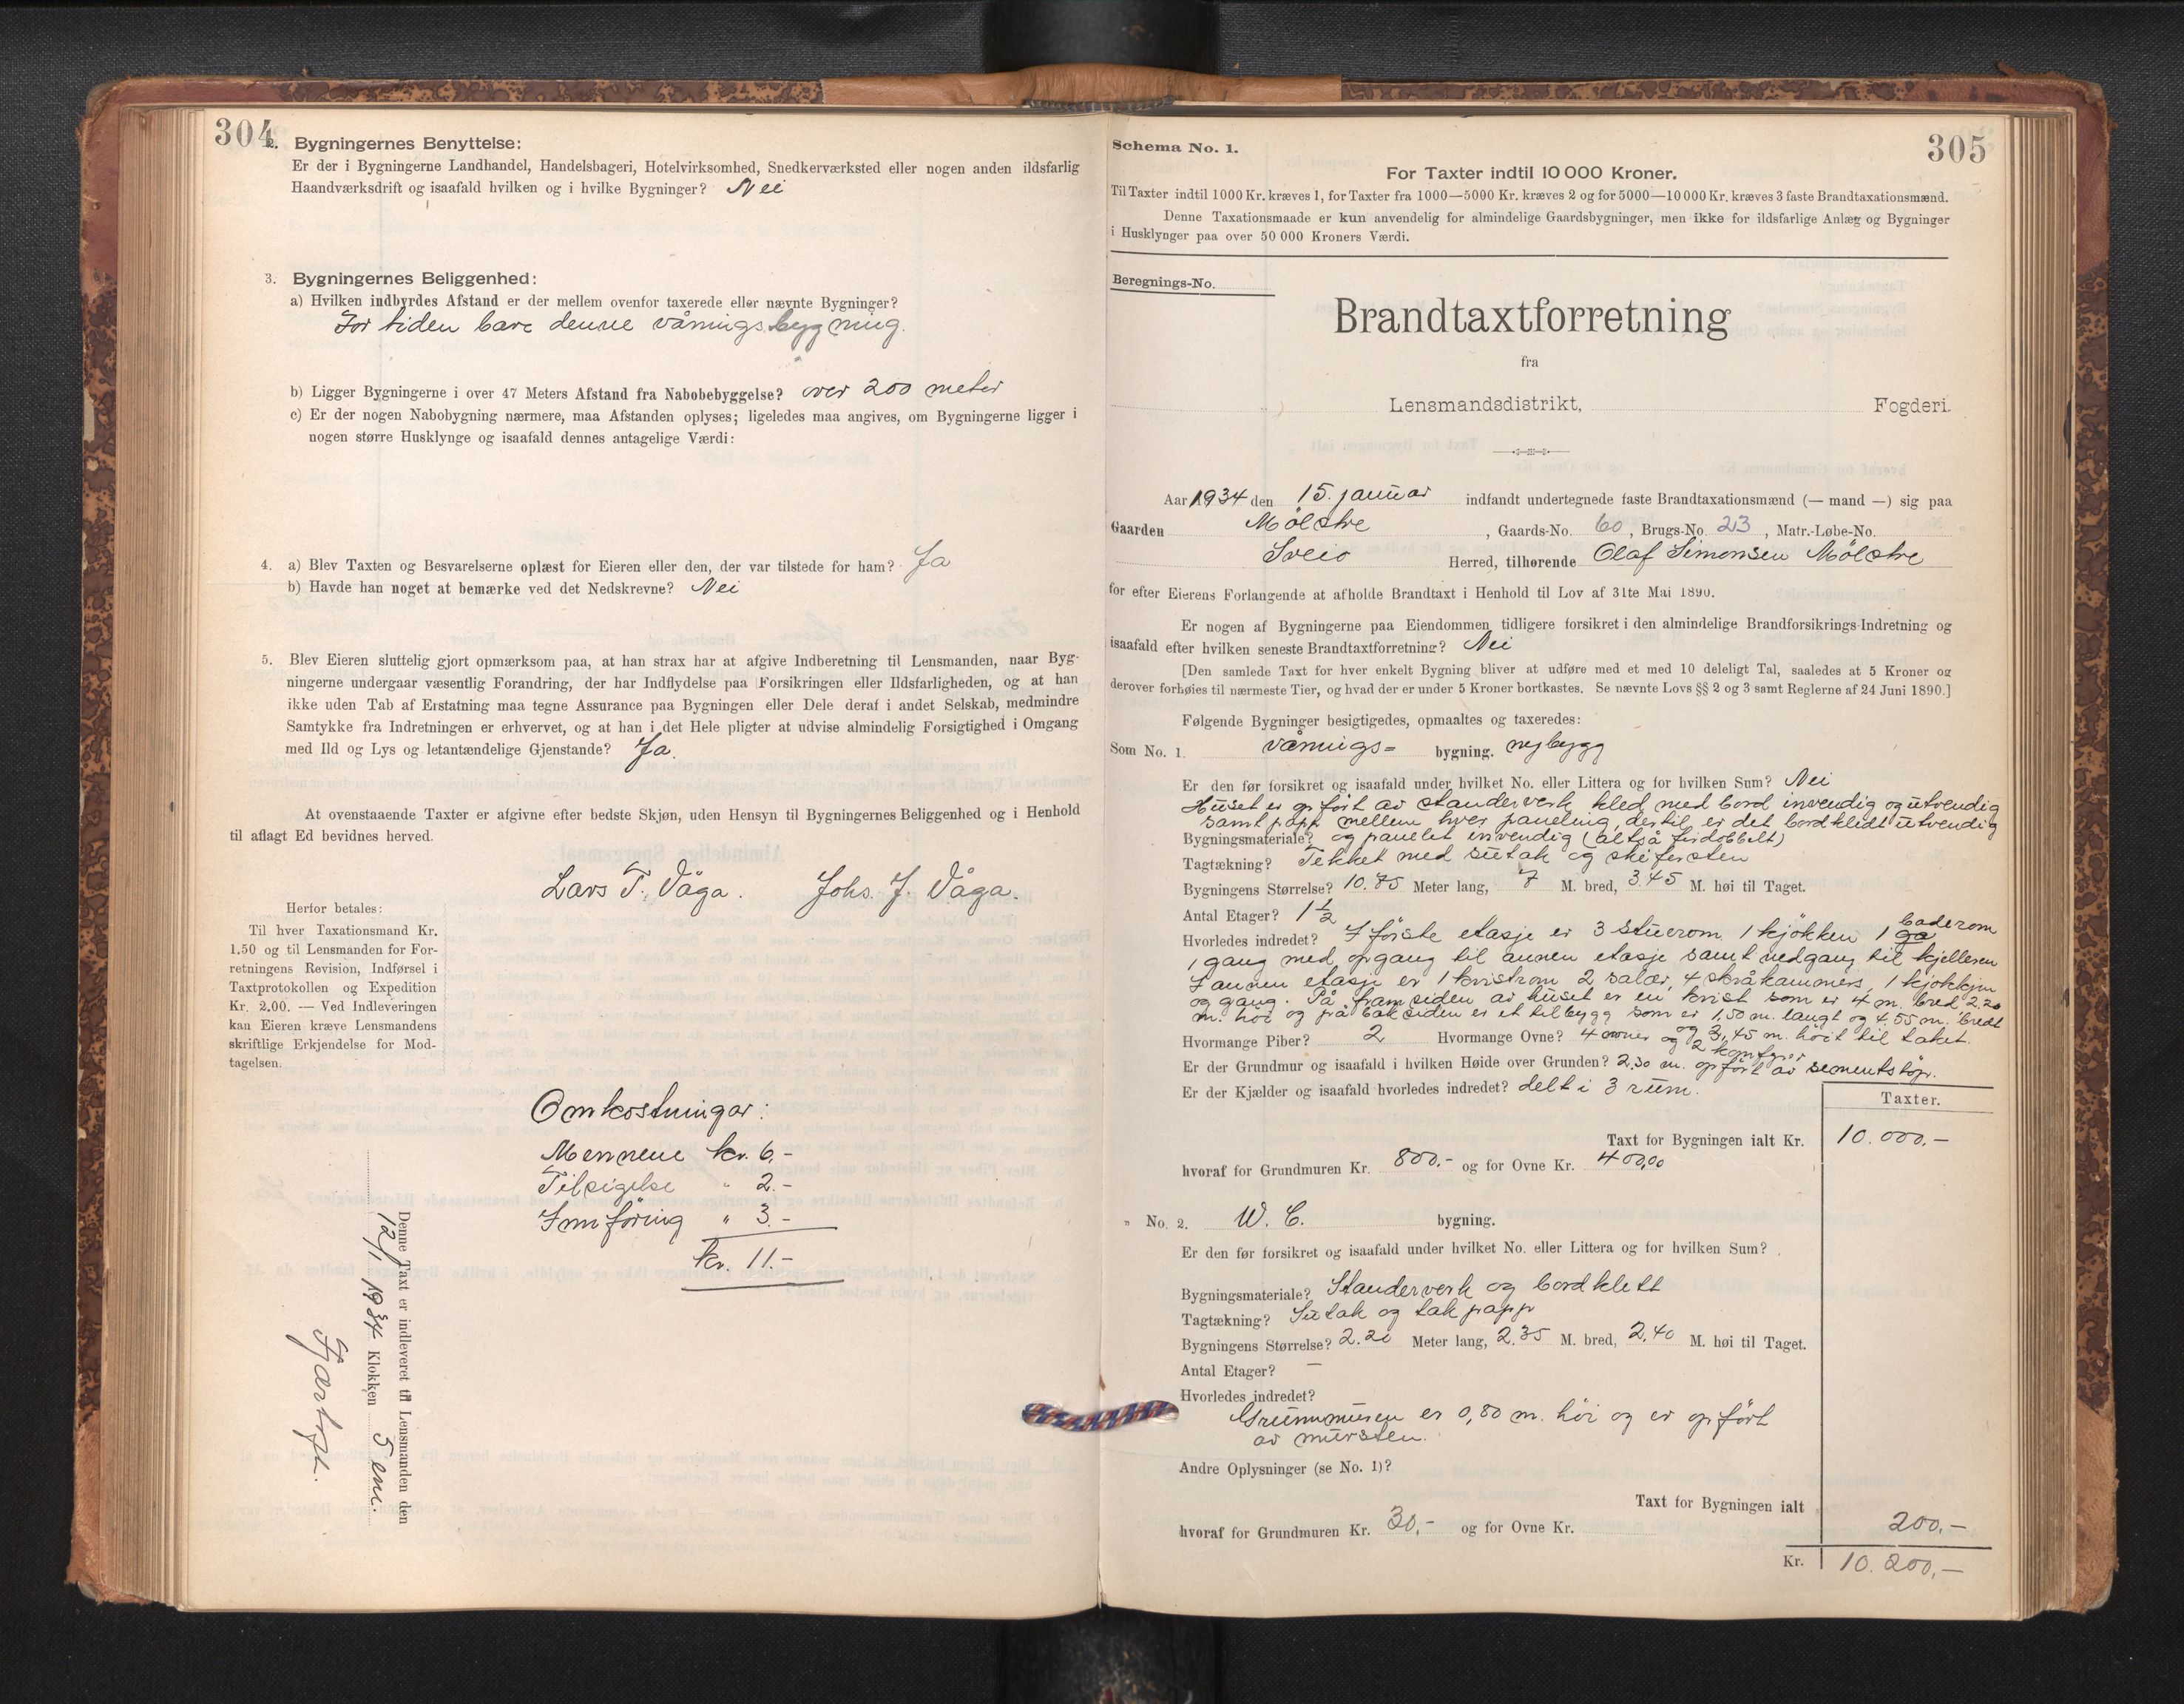 304
2. Bygningernes Benyttelse:
Er der i Bygningerne Landhandel, Handelsbageri, Hotelvirksomhed, Snedkerværksted eller nogen anden ildsfarlig
Haandværksdrift og isaafald hvilken og i hvilke Bygninger? Nei
3. Bygningernes Beliggenhed:
a) Hvilken indbyrdes Afstand er der mellem ovenfor taxerede eller nævnte Bygninger?
For tiden bare denne våningsbygning.
b) Ligger Bygningerne i over 47 Meters Afstand fra Nabobebyggelse? over 200 meter
c) Er der nogen Nabobygning nærmere, maa Afstanden oplyses; ligeledes maa angives, om Bygningerne ligger i
nogen større Husklynge og isaafald dennes antagelige Værdi:
4. a) Blev Taxten og Besvarelserne oplæst for Eieren eller den, der var tilstede for ham? Ja
b) Havde han noget at bemærke ved det Nedskrevne? Nei
5. Blev Eieren sluttelig gjort opmærksom paa, at han strax har at afgive Indberetning til Lensmanden, naar Byg-
ningerne undergaar væsentlig Forandring, der har Indflydelse paa Forsikringen eller Ildsfarligheden, og at han
ikke uden Tab af Erstatning maa tegne Assurance paa Bygningen eller Dele deraf i andet Selskab, medmindre
Samtykke fra Indretningen er erhvervet, og at han i det Hele pligter at udvise almindelig Forsigtighed i Omgang
med Ild og Lys og letantændelige Gjenstande? Ja.
At ovenstaaende Taxter er afgivne efter bedste Skjøn, uden Hensyn til Bygningernes Beliggenhed og i Henhold
til aflagt Ed bevidnes herved.
Lars T. Våga. Johs. J. Våga.
Herfor betales:
Til hver Taxationsmand Kr.
1.50 og til Lensmanden for For-
retningens Revision, Indførsel i
Taxtprotokollen og Expedition
Kr. 2.00. — Ved Indleveringen
kan Eieren kræve Lensmandens
skriftlige Erkjendelse for Mod-
tagelsen.
Omkostningar:
Mennene kr. 6,-
Tilsigelse " 2.-
Innføring " 3.-
kr. 11.-
Denne Taxt er indleveret til Lensmanden den
12/1 1934 Klokken 5 em.
305
Schema No. 1.
For Taxter indtil 10 000 Kroner.
Til Taxter indtil 1000 Kr. kræves 1, for Taxter fra 1000—5000 Kr. kræves 2 og for 5000—10000 Kr. kræves 3 faste Brandtaxationsmænd.
Denne Taxationsmaade er kun anvendelig for almindelige Gaardsbygninger, men ikke for ildsfarlige Anlæg og Bygninger
i Husklynger paa over 50 000 Kroners Værdi.
Beregnings-No.
Brandtaxtforretning
fra
Lensmandsdistrikt, Fogderi.
Aar 1934 den 15. januar indfandt undertegnede faste Brandtaxationsmænd (— mand —) sig paa
Gaarden Mölstre, Gaards-No. 60, Brugs-No. 213, Matr.-Løbe-No.
Sveio Herred, tilhørende Olaf Simonsen Mölstre
for efter Eierens Forlangende at afholde Brandtaxt i Henhold til Lov af 31te Mai 1890.
Er nogen af Bygningerne paa Eiendommen tidligere forsikret i den almindelige Brandforsikrings-Indretning og
isaafald efter hvilken seneste Brandtaxtforretning? Nei
[Den samlede Taxt for hver enkelt Bygning bliver at udføre med et med 10 deleligt Tal, saaledes at 5 Kroner og
derover forhøies til nærmeste Tier, og hvad der er under 5 Kroner bortkastes. Se nævnte Lovs §§ 2 og 3 samt Reglerne af 24 Juni 1890.]
Følgende Bygninger besigtigedes, opmaaltes og taxeredes:
Som No. 1. vånings= bygning. nybygg
Er den før forsikret og isaafald under hvilket No. eller Littera og for hvilken Sum? Nei
Huset er opført av standerverk kled med bord invendig og utvendig
samt papp mellem hver paneling, dertil er det bordkledt utvendig
Bygningsmateriale? og panelet invendig (altså firdobbelt)
Tagtækning? Tekket med sutak og skifersten
Bygningens Størrelse? 10.75 Meter lang, 7 M. bred, 3.45 M. høi til Taget.
Antal Etager? 1 1/2
Hvorledes indredet? I første etasje er 3 stuerom 1 kjøkken 1 baderom
1 gang med opgang til annen etasje samt nedgang til kjelleren
I annen etasje er 1 kvistrom 2 saler, 4 skråkammers, 1 kjøkken
og gang. På framsiden av huset er en kvist som er 4 m. bred 2,20
m. høi og på baksiden er et tilbygg som er 1,50 m. langt og 4.55 m. bredt
og 3,45 m. høit til taket.
Hvormange Piber? 2 Hvormange Ovne? 4 ovner og 2 komfyrer
Er der Grundmur og isaafald i hvilken Høide over Grunden? 2,30 m. opført av sementstøp.
Er der Kjælder og isaafald hvorledes indredet? delt i 3 rum.
Taxter.
Taxt for Bygningen ialt Kr. 10.000.-
hvoraf for Grundmuren Kr. 800.- og for Ovne Kr. 400,00
" No. 2. W. C. bygning.
Er den før forsikret og isaafald under hvilket No. eller Littera og for hvilken Sum?
Bygningsmateriale? Standerverk og bordklett
Tagtækning? Sutak og takpapp
Bygningens Størrelse? 2.20 Meter lang, 2.35 M. bred, 2,40 M. høi til Taget.
Antal Etager? —
Hvorledes indredet?
Grunnmuren er 0,80 m. høi og er opført
av mursten.
Andre Oplysninger (se No. 1)?
Taxt for Bygningen ialt 200,-
hvoraf for Grundmuren Kr. 30,- og for Ovne Kr.
Kr. 10.200,-